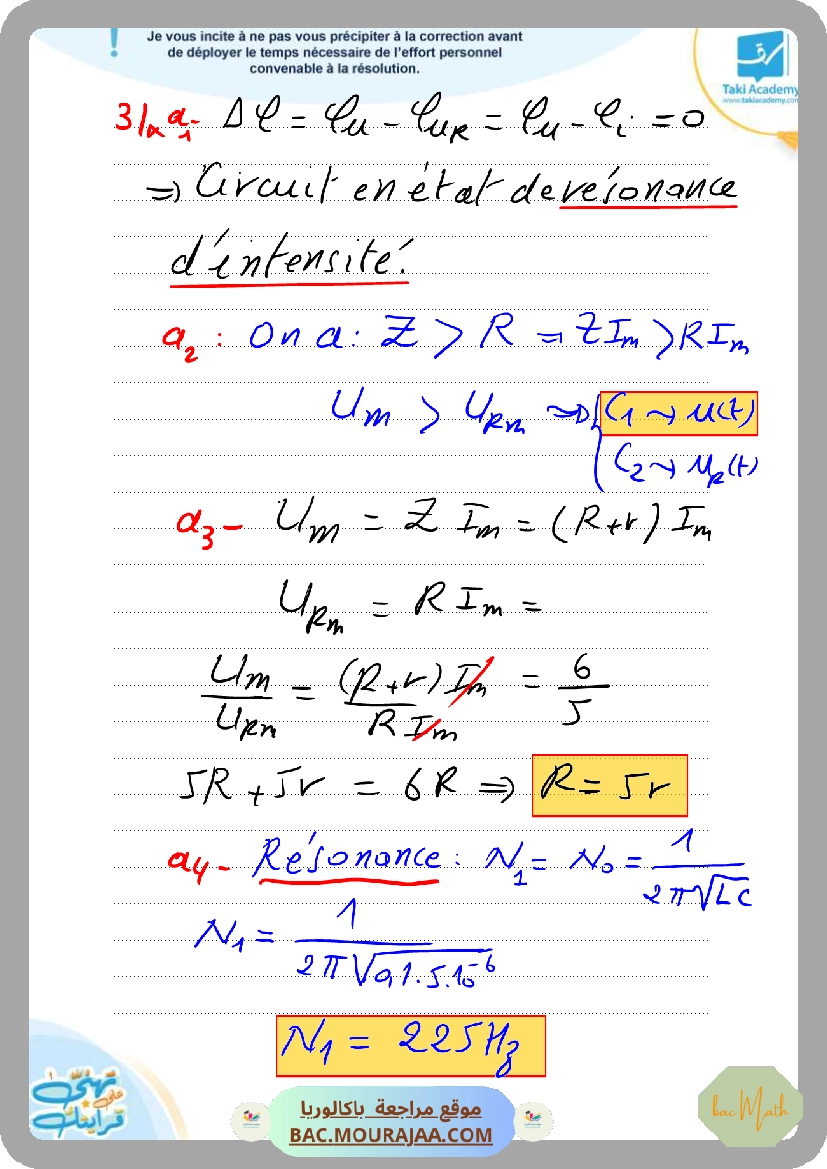 Je vous incite à ne pas vous précipiter à la correction avant
de déployer le temps nécessaire de l'effort personnel
convenable à la résolution.
Taki Academy
www.takiacademy.com
a₁- Δφ = φu - φuR = φu - φi = 0
⇒ Circuit en état de résonance
d'intensité.
a₂ : On a : Z > R ⇒ ZIm > RIm
Um > URm ⇒ { C1 → u(t)
C2 → uR(t)
a3- Um = Z Im = (R+r) Im
URm = R Im =
Um / URm = (R+r) Im / R Im = 6/5
5R + 5r = 6R ⇒ R = 5r
a4- Résonance : N1 = N0 = 1 / 2π√LC
N1 = 1 / 2π√0,1.5.10⁻⁶
N1 = 225Hz
موقع مراجعة باكالوريا
BAC.MOURAJAA.COM
bac Math